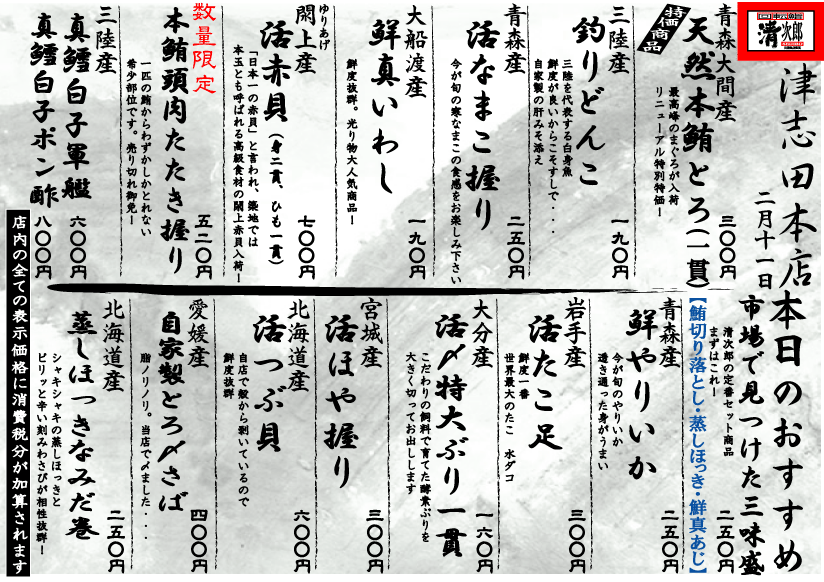 清次郎
津志田本店
二月十一日
本日のおすすめ
特価商品
青森大間産
天然本鮪とろ(一貫)
最高峰のまぐろが入荷
リニューアル特別特価!
三〇〇円
三陸産
釣りどんこ
三陸を代表する白身魚
鮮度が良いからこそすしで・・・
自家製の肝みそ添え
一九〇円
青森産
活なまこ握り
今が旬の寒なまこの食感をお楽しみ下さい
二五〇円
大船渡産
鮮真いわし
鮮度抜群。光り物大人気商品!
一九〇円
ゆりあげ
閖上産
活赤貝(身二貫、ひも一貫)
「日本一の赤貝」と言われ、築地では
本玉とも呼ばれる高級食材の閖上赤貝入荷!
七〇〇円
数量限定
本鮪頭肉たたき握り
一匹の鮪からわずかしかとれない
希少部位です。売り切れ御免!
五二〇円
三陸産
真鱈白子軍艦
六〇〇円
真鱈白子ポン酢
八〇〇円
市場で見つけた三味盛
清次郎の定番セット商品
まずはこれ!
二五〇円
【鮪切り落とし・蒸しほっき・鮮真あじ】
青森産
鮮やりいか
今が旬のやりいか
透き通った身がうまい
二五〇円
岩手産
活たこ足
鮮度一番
世界最大のたこ 水ダコ
三〇〇円
大分産
活〆特大ぶり一貫
こだわりの飼料で育てた酵素ぶりを
大きく切ってお出しします
一六〇円
宮城産
活ほや握り
三〇〇円
北海道産
活つぶ貝
自店で殻から剥いているので
鮮度抜群
六〇〇円
愛媛産
自家製とろ〆さば
脂ノリノリ。当店で〆ました・・・
四〇〇円
北海道産
蒸しほっきなみだ巻
シャキシャキの蒸しほっきと
ピリッと辛い刻みわさびが相性抜群!
二五〇円
店内の全ての表示価格に消費税分が加算されます